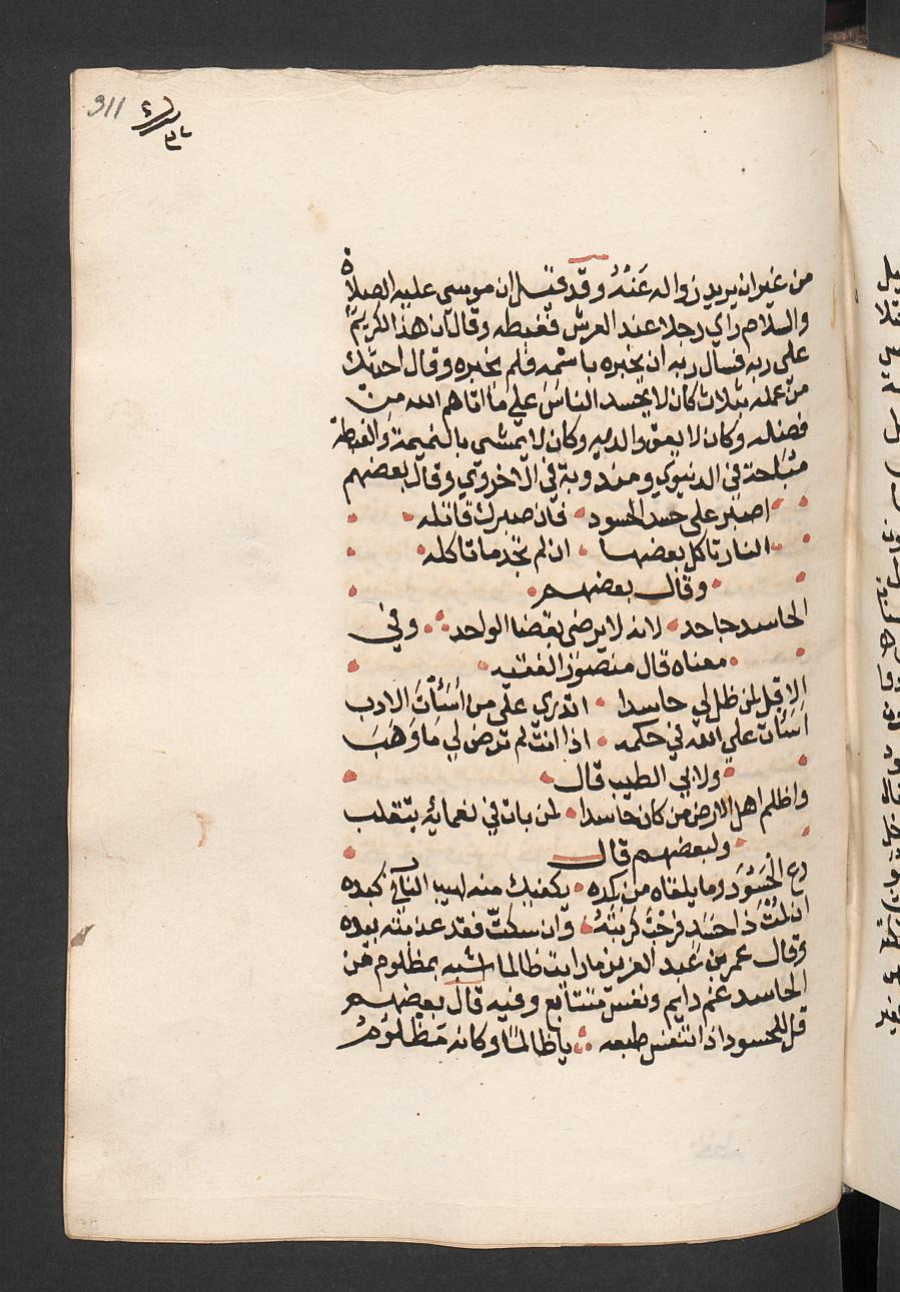 من غير ان يريد زواله عَنْهُ وقد قيل ان موسي عليه الصلاة
والسلام راي رجلا عند العرش فغبطه وقال ان هذا الكريم
علي ربه فسال ربه ان يخبره باسمه فلم يخبره وقال احدثك
من عمله بثلاث كان لا يحسد الناس علي ما اتاهم الله من
فضله وكان لا يعق والديه وكان لا يمشي بالنميمة والغبطة
مباحة في الدنيوي ومندوبة في الاخروي وقال بعضهم
اصبر علي حسد الحسود فان صبرك قاتله
النار تاكل بعضها ان لم تجد ما تاكله
وقال بعضهم
الحاسد جاحد لانه لا يرضي بقضا الواحد وفي
معناه قال منصور الفقيه
الا قل لمن ظل لي حاسدا اتدري علي من أسَأتَ الادب
اَسَأت علي الله في حكمه اذا انت لم ترض لي ما وَهَبَ
ولابي الطيب قال
واظلم اهل الارض من كان حاسدا لمن بات في نعمائه يتقلب
ولبعضهم قال
دع الحَسُودَ وما يلقاه من كبده يكفيك منه لهيب النار في كبده
ان لُمْتَ ذا حَسَدٍ فرّجْتَ كربتَهُ وان سكتّ فقد عذبته بيده
وقال عمر بن عبد العزيز ما رايت ظالما اشبه بمظلوم من
الحاسد غم دايم ونفس متتابع وفيه قال بعضهم
قل للحسود اذا تنفس طبعه يا ظالمًا وكانه مَظلُومُ